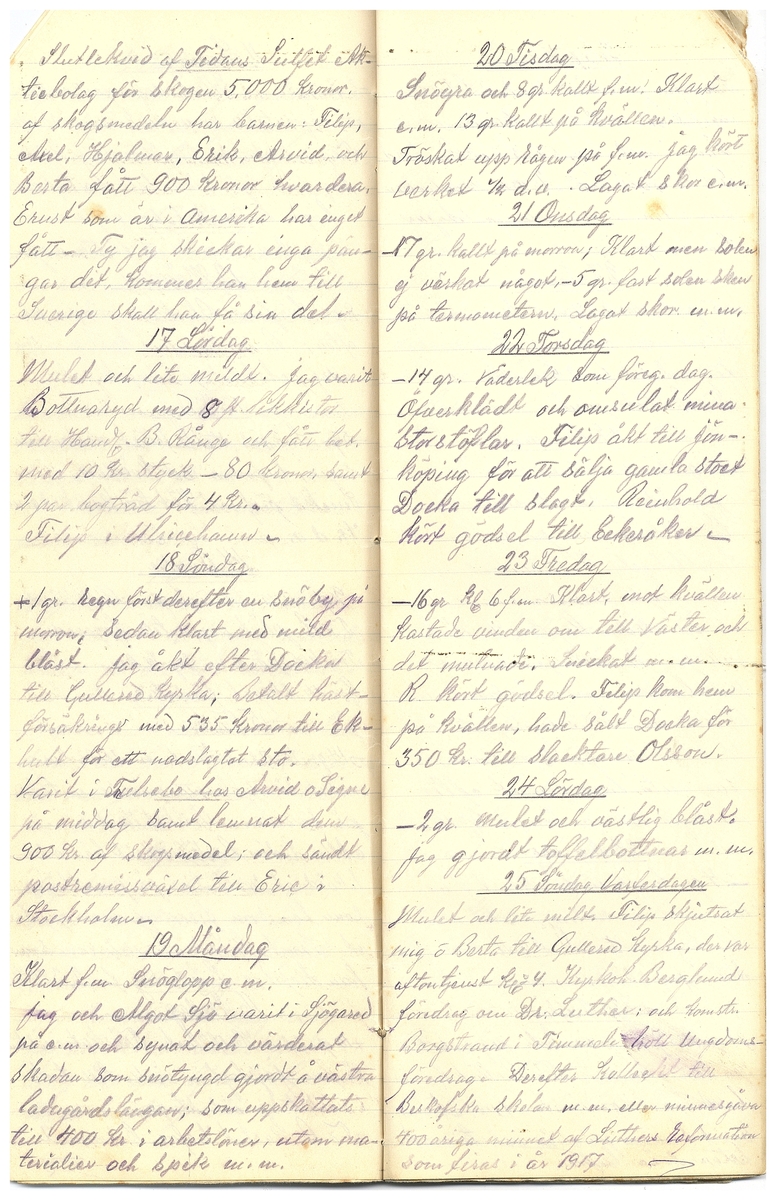 Slutlekvid af Tidans Sulfit Ak-
tiebolag för skogen 5,000 kronor.
af skogsmedeln har barnen: Filip,
Axel, Hjalmar, Erik, Arvid och
Berta fått 900 kronor hvardera,
Ernst som är i Amerika har inget
fått - Ty jag skickar inga pän-
gar dit, kommer han hem till
Sverige skall han få sin del.
17 Lördag
Mulet och lite mildt. jag varit
Bottnaryd med 8 st. likkistor
till Handl. B. Rånge och fått bet.
med 10 Kr. styck - 80 kronor, samt
2 par bogträd för 4 Kr.
Filip i Ulricehamn
18 Söndag
+1 gr. regn först derefter en snöby på
morron; sedan klart med mild
blåst. jag åkt efter Docka
till Gullered Kyrka; betalt häst-
försäkringe med 535 kronor till Ek-
hult för ett nödslagtat sto.
Varit i hos Arvid o Signe
på middag samt lemnat dem
900 Kr. af skogsmedel; och sändt
postremissväxel till Eric i
Stockholm
19 Måndag
Klart f.m Snöglopp e.m.
jag och Algot Sjö varit i Sjögared
på e.m och synat och värderat
skadan som snötyngd gjordt å västra
ladugårdslängan; som uppskattats
till 400 Kr. i arbetslöner, utom ma-
terialier och spik m.m.
20 Tisdag
Snöyra och 8 gr. kallt f.m. Klart
e.m. 13 gr. kallt på kvällen.
Tröskat upp Rågen på f.m. jag kört
värket ½ d.v. Lagat skor e.m.
21 Onsdag
-17 gr. kallt på morron; Klart men solen
ej väskat något, -5 gr. fast solen sken
på termometern. Lagat skor m.m.
22 Torsdag
-14 gr. Väderlek som föreg. dag.
Öfverklädt och omsulat mina
storstöflar. Filip åkt till Jön-
köping för att sälja gamla stoet
Docka till slagt. Reinhold
kört gödsel till Eekeråker
23 Fredag
-16 gr Kl 6 f.m. Klart, mot kvällen
kastade vinden om till Väster och
det mulnade. Snickat m.m.
R. kört gödsel. Filip kom hem
på kvällen, hade sålt Docka för
350 Kr. till slacktare Olsson.
24 Lördag
-2 gr. mulet och västlig blåst.
jag gjordt toffelbottnar m.m.
25 Söndag Varferdagen
Mulet och lite milt. Filip skjutsat
mig o Berta till Gullered Kyrka, der var
aftontjenst Kl 4. Kyrkoh. Berglund
föredrag om Dr. Luther; och komstr.
Borgstrand i Timmele höll Ungdoms-
föredrag. Derefter kollekt till
skolan m.m. eller minnesgåva
400 åriga minnet af Luthers Reformation
som firas i år 1917